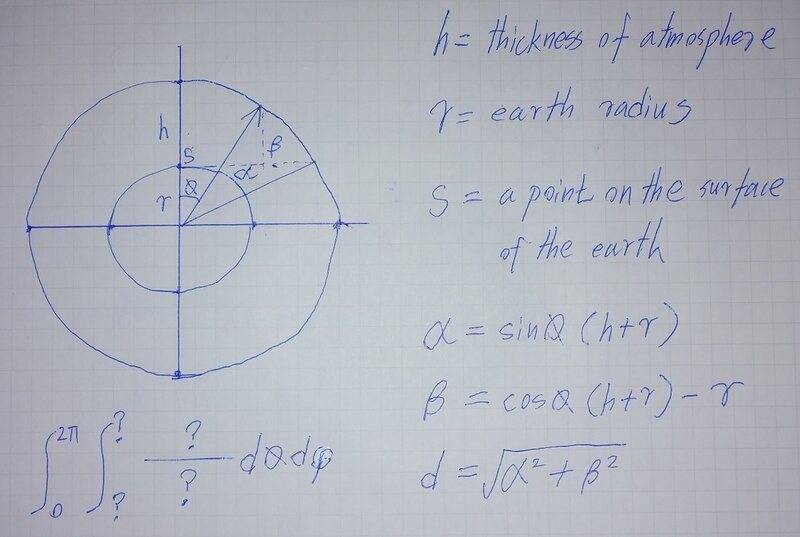 h = thickness of atmosphere
r = earth radius
S = a point on the surface
of the earth
α = sinθ (h+r)
β = cosθ (h+r) - r
d = √α² + β²
h
S
β
α
r
θ
∫₀^2π ∫?^? ?/? dθdφ